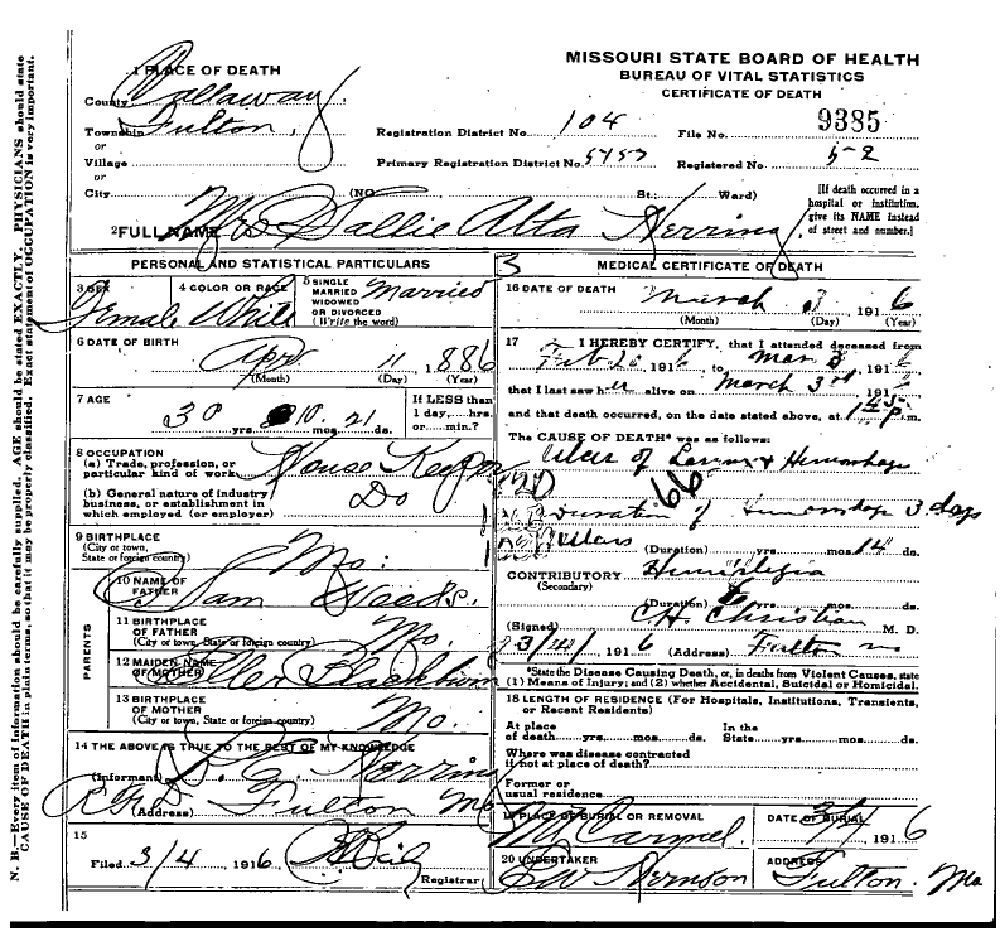 N. B.—Every item of information should be carefully supplied. AGE should be stated EXACTLY. PHYSICIANS should state
CAUSE OF DEATH in plain terms, so that it may be properly classified. Exact statement of OCCUPATION is very important.
MISSOURI STATE BOARD OF HEALTH
BUREAU OF VITAL STATISTICS
CERTIFICATE OF DEATH
1 PLACE OF DEATH
County Callaway
Township Fulton
or
Village
or
City (NO. St.; Ward)
Registration District No. 104
File No. 9385
Primary Registration District No. 5757
Registered No. 52
[If death occurred in a
hospital or institution,
give its NAME instead
of street and number.]
2 FULL NAME Mrs Sallie Alta Herring
PERSONAL AND STATISTICAL PARTICULARS
3 SEX Female
4 COLOR OR RACE White
5 SINGLE
MARRIED
WIDOWED
OR DIVORCED
(Write the word) Married
6 DATE OF BIRTH
Apr 11 1886
(Month) (Day) (Year)
7 AGE
30 yrs. 10 mos. 21 ds.
If LESS than
1 day, hrs.
or min.?
8 OCCUPATION
(a) Trade, profession, or
particular kind of work House Keeper
(b) General nature of industry
business, or establishment in
which employed (or employer) Do
9 BIRTHPLACE
(City or town,
State or foreign country) Mo.
PARENTS
10 NAME OF
FATHER Sam Woods.
11 BIRTHPLACE
OF FATHER
(City or town, State or foreign country) Mo.
12 MAIDEN NAME
OF MOTHER Ellen Blackburn
13 BIRTHPLACE
OF MOTHER
(City or town, State or foreign country) Mo.
14 THE ABOVE IS TRUE TO THE BEST OF MY KNOWLEDGE
(Informant) Herring
(Address) RFD Fulton Mo
15
Filed 3/4 1916
Registrar
3
MEDICAL CERTIFICATE OF DEATH
16 DATE OF DEATH
March 3 1916
(Month) (Day) (Year)
17 I HEREBY CERTIFY, that I attended deceased from
Feb 20 1916 to Mar 3, 1916
that I last saw her alive on March 3rd 1916
and that death occurred, on the date stated above, at 1 45 p m.
The CAUSE OF DEATH* was as follows:
Ulcer of & Hemorrhage
120
66
Duration of Hemorrhage 3 days
(Duration) yrs. mos. 14 ds.
CONTRIBUTORY Hemiplegia
(Secondary)
(Duration) yrs. mos. ds.
(Signed) C.H. Christian M. D.
3/4/ 1916 (Address) Fulton Mo
*State the Disease Causing Death, or, in deaths from Violent Causes, state
(1) Means of Injury; and (2) whether Accidental, Suicidal or Homicidal.
18 LENGTH OF RESIDENCE (For Hospitals, Institutions, Transients,
or Recent Residents)
At place
of death yrs. mos. ds.
In the
State yrs. mos. ds.
Where was disease contracted
if not at place of death?
Former or
usual residence
19 PLACE OF BURIAL OR REMOVAL
Mt Carmel
DATE OF BURIAL
3/4 1916
20 UNDERTAKER
ADDRESS
Fulton Mo